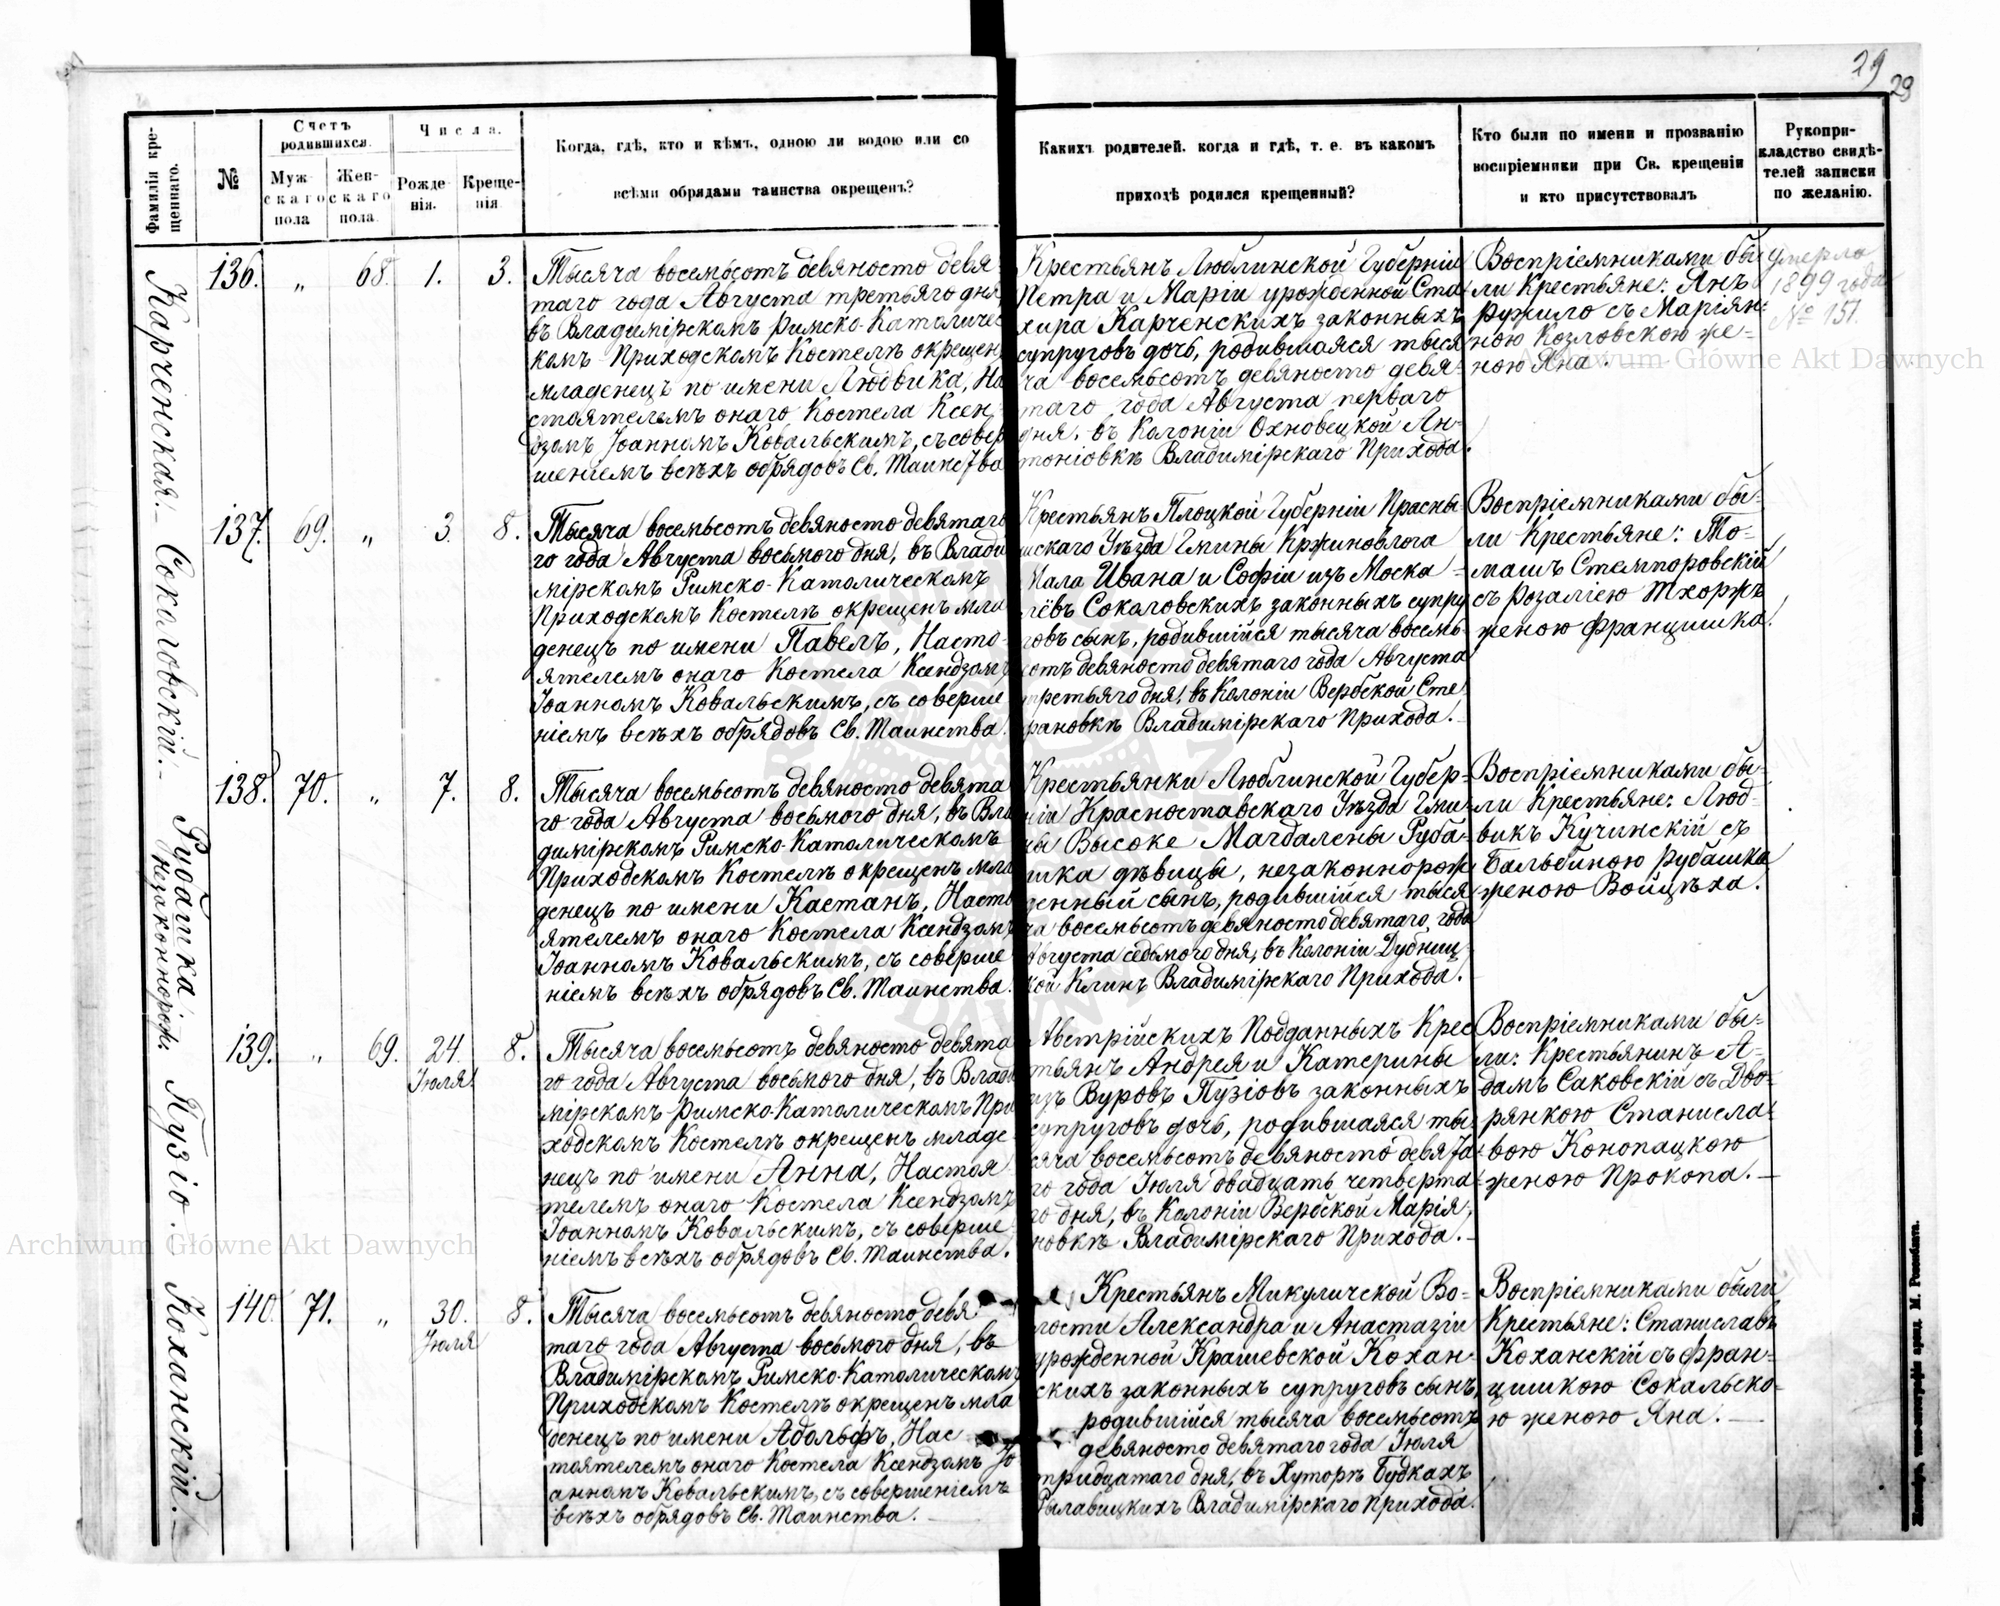 29
29
Фамилія кре-
щеннаго.
№
Счетъ
родившихся.
Муж-
скаго
пола
Жен-
скаго
пола.
Числа.
Рожде-
нія.
Креще-
нія
Когда, гдѣ, кто и кѣмъ, одною ли водою или со
всѣми обрядами таинства окрещенъ?
Какихъ родителей, когда и гдѣ, т. е. въ какомъ
приходѣ родился крещенный?
Кто были по имени и прозванію
воспріемники при Св. крещеніи
и кто присутствовалъ
Рукопри-
кладство свидѣ-
телей записки
по желанію.
Карченская.
136. " 68. 1. 3.
Тысяча восемьсотъ девяносто девя-
таго года Августа третьяго дня
въ Владимірскомъ Римско-Католичес
комъ Приходскомъ Костелѣ окрещенъ
младенецъ по имени Людвика, На
стоятелемъ онаго Костела Ксен-
дзомъ Іоанномъ Ковальскимъ, съ совер
шеніемъ всѣхъ обрядовъ Св. Таинства
Крестьянъ Люблинской Губерніи
Петра и Маріи урожденной Ста
хира Карченскихъ законныхъ
супруговъ дочь, родившаяся тыся
ча восемьсотъ девяносто девя-
таго года Августа перваго
дня, въ Колоніи Охновецкой Ан-
тоніовкѣ Владимірскаго Прихода.
Воспріемниками бы
ли Крестьяне: Янъ
Ружило съ Маріян-
ною Козловскою же-
ною Яна.
Умерла
1899 года
№ 151.
Соколовскій.
137. 69. " 3. 8.
Тысяча восемьсотъ девяносто девятаго
го года Августа восьмого дня, въ Влади
мірскомъ Римско-Католическомъ
Приходскомъ Костелѣ окрещенъ мла
денецъ по имени Павелъ, Насто-
ятелемъ онаго Костела Ксендзомъ
Іоанномъ Ковальскимъ, съ соверше
ніемъ всѣхъ обрядовъ Св. Таинства.
Крестьянъ Плоцкой Губерніи Прасны
шскаго Уѣзда Гмины Кржиновлога
Мала Ивана и Софіи изъ Моска-
лёвъ Сокаловскихъ законныхъ супру
говъ сынъ, родившійся тысяча восемь
сотъ девяносто девятаго года Августа
третьяго дня, въ Колоніи Вербской Сте
фановкѣ Владимірскаго Прихода.
Воспріемниками бы-
ли Крестьяне: То-
машъ Стемпоровскій
съ Розаліею Тхоржъ
женою Францишка.
Рубашка
незаконнорож.
138. 70. " 7. 8.
Тысяча восемьсотъ девяносто девята
го года Августа восьмого дня, въ Вла
димірскомъ Римско-Католическомъ
Приходскомъ Костелѣ окрещенъ мла
денецъ по имени Каетанъ, Насто
ятелемъ онаго Костела Ксендзомъ
Іоанномъ Ковальскимъ, съ соверше
ніемъ всѣхъ обрядовъ Св. Таинства.
Крестьянки Люблинской Губер-
ніи Красноставскаго Уѣзда Гми-
ны Высоке Магдалены Руба-
шка дѣвицы, незаконнорож
денный сынъ, родившійся тыся
ча восемьсотъ девяносто девятаго года
Августа седьмого дня, въ Колоніи Дубниц
кой Клинъ Владимірскаго Прихода.
Воспріемниками бы-
ли Крестьяне: Люд-
викъ Кучинскій съ
Бальбиною Рубашка
женою Войцѣха.
Пузіо.
139. " 69. 24. 8.
Іюля
Тысяча восемьсотъ девяносто девята
го года Августа восьмого дня, въ Влади
мірскомъ Римско-Католическомъ При
ходскомъ Костелѣ окрещенъ младе-
нецъ по имени Анна, Настоя
телемъ онаго Костела Ксендзомъ
Іоанномъ Ковальскимъ, съ соверше
ніемъ всѣхъ обрядовъ Св. Таинства.
Австрійскихъ Подданныхъ Крес
тьянъ Андрея и Катерины
изъ Вуровъ Пузіовъ законныхъ
супруговъ дочь, родившаяся ты
сяча восемьсотъ девяносто девята
го года Іюля двадцать четверта
го дня, въ Колоніи Вербской Марія-
новкѣ Владимірскаго Прихода.
Воспріемниками бы-
ли: Крестьянинъ А-
дамъ Саковскій съ Дво-
рянкою Станисла-
вою Конопацкою
женою Прокопа.
Коханскій.
140. 71. " 30. 8.
Іюля
Тысяча восемьсотъ девяносто девя
таго года Августа восьмого дня, въ
Владимірскомъ Римско-Католическомъ
Приходскомъ Костелѣ окрещенъ мла
денецъ по имени Адольфъ, Нас
тоятелемъ онаго Костела Ксендзомъ Іо
анномъ Ковальскимъ, съ совершеніемъ
всѣхъ обрядовъ Св. Таинства.
Крестьянъ Микуличской Во-
лости Александра и Анастазіи
урожденной Крашевской Кохан-
скихъ законныхъ супруговъ сынъ,
родившійся тысяча восемьсотъ
девяносто девятаго года Іюля
тридцатаго дня, въ Хуторѣ Будкахъ
Владимірскаго Прихода.
Воспріемниками были
Крестьяне: Станиславъ
Коханскій съ Фран-
цишкою Сокальско-
ю женою Яна.
Житоміръ, типо-литографія аренд. М. Розенблата.
Archiwum Główne Akt Dawnych
Archiwum Główne Akt Dawnych